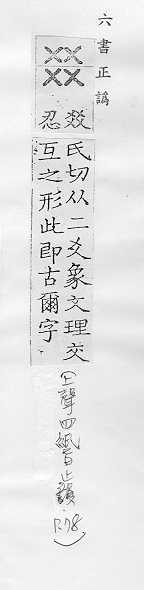 六書正譌
㸚
忍
氏切从二爻象文理交
互之形此即古爾字
(上聲四紙旨止韻. P.78)